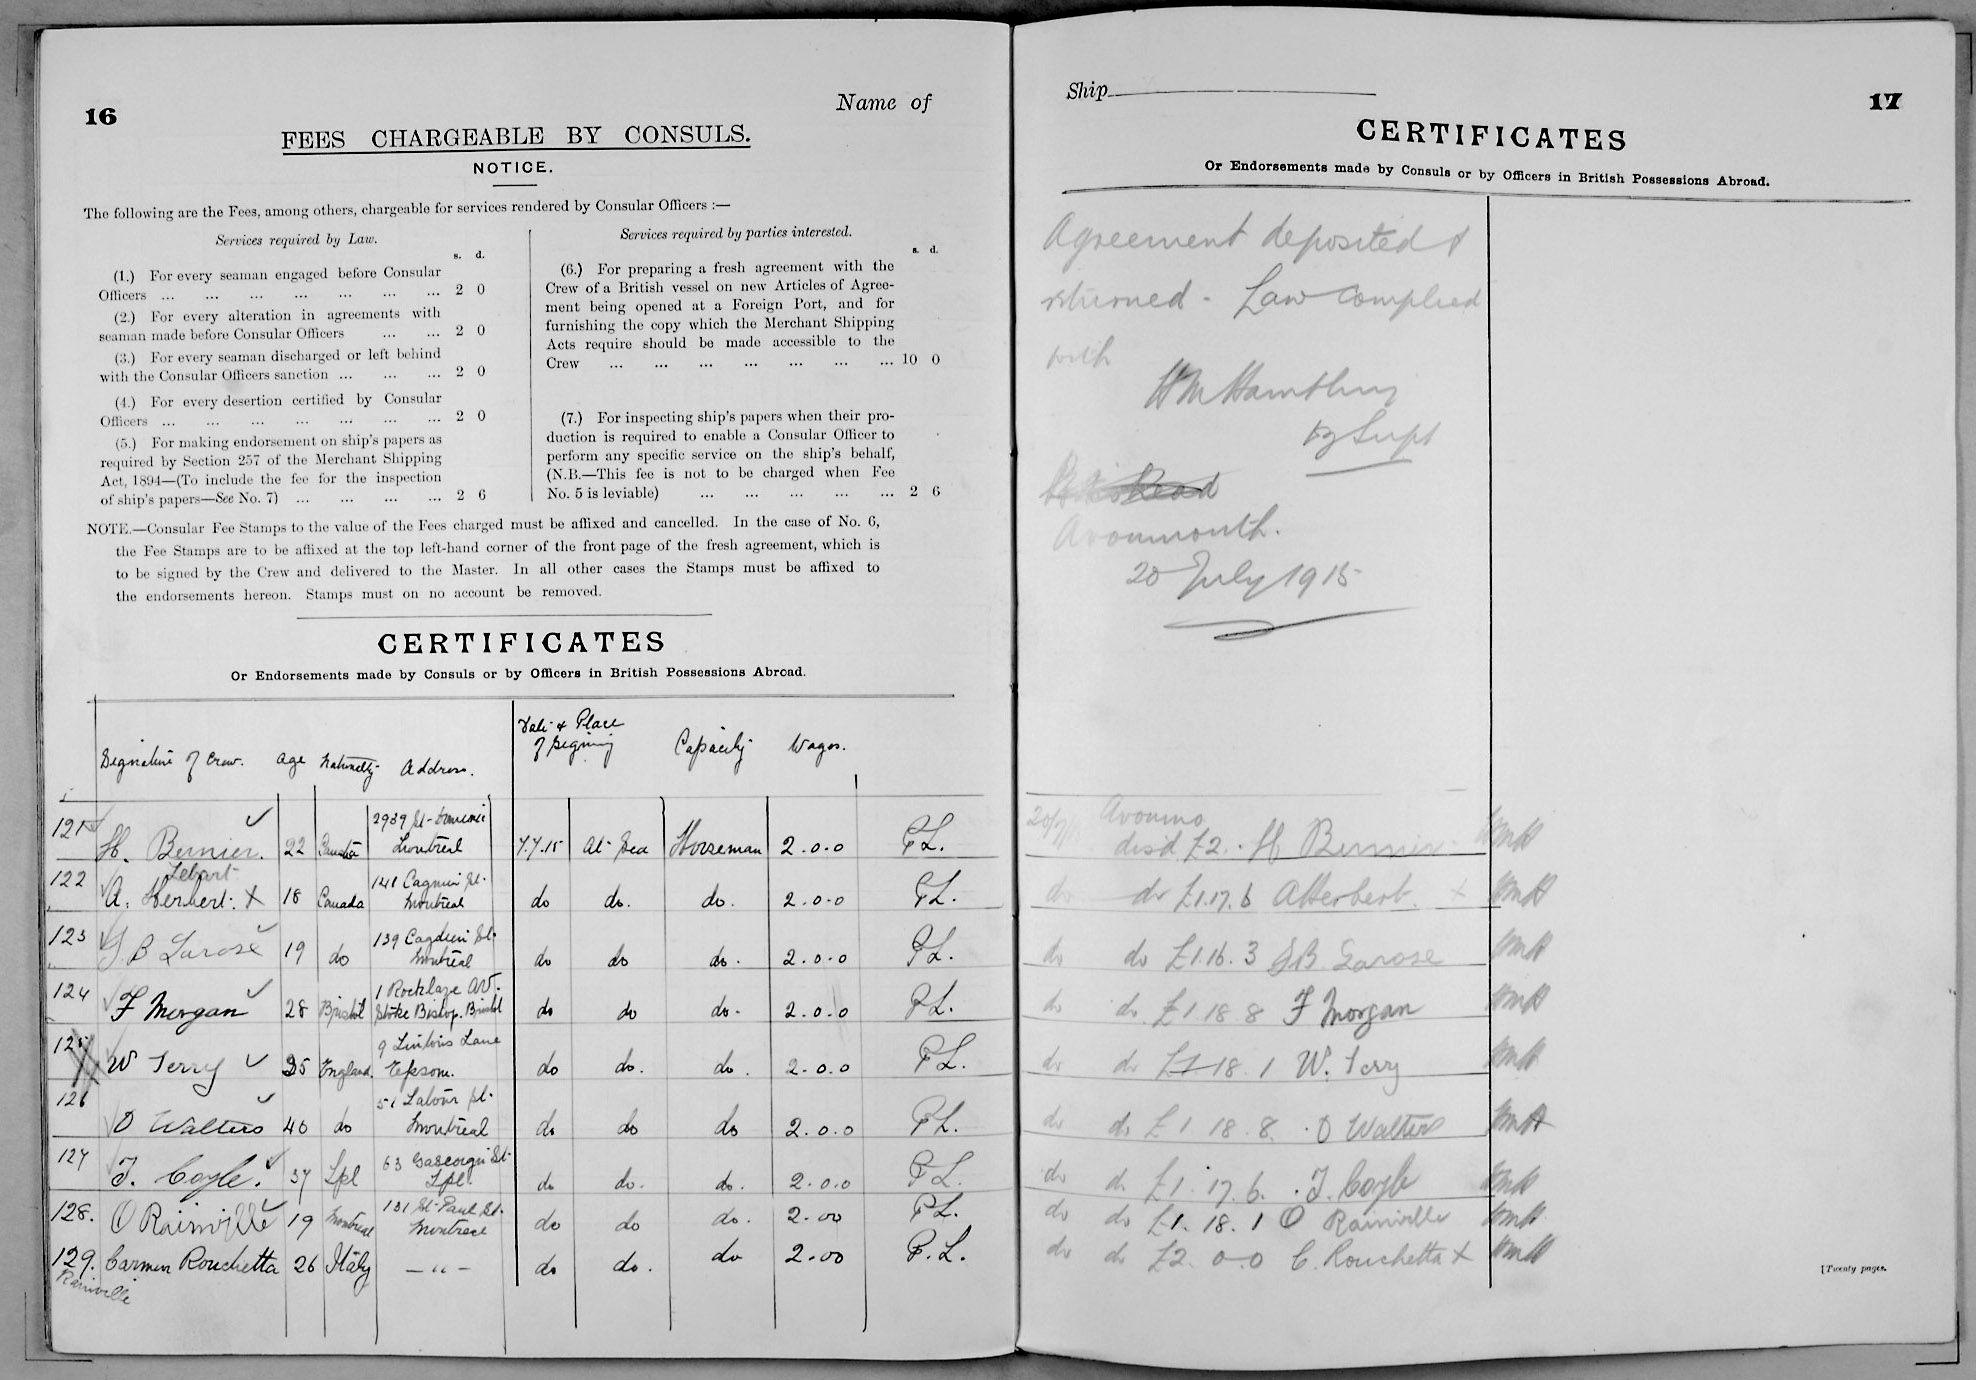 16
Name of
FEES CHARGEABLE BY CONSULS.
NOTICE.
The following are the Fees, among others, chargeable for services rendered by Consular Officers :—
Services required by Law.
s. d.
(1.) For every seaman engaged before Consular
Officers ... ... ... ... ... ... ... 2 0
(2.) For every alteration in agreements with
seaman made before Consular Officers ... ... 2 0
(3.) For every seaman discharged or left behind
with the Consular Officers sanction ... ... ... 2 0
(4.) For every desertion certified by Consular
Officers ... ... ... ... ... ... ... 2 0
(5.) For making endorsement on ship's papers as
required by Section 257 of the Merchant Shipping
Act, 1894—(To include the fee for the inspection
of ship's papers—See No. 7) ... ... ... ... 2 6
Services required by parties interested.
s. d.
(6.) For preparing a fresh agreement with the
Crew of a British vessel on new Articles of Agree-
ment being opened at a Foreign Port, and for
furnishing the copy which the Merchant Shipping
Acts require should be made accessible to the
Crew ... ... ... ... ... ... ... 10 0
(7.) For inspecting ship's papers when their pro-
duction is required to enable a Consular Officer to
perform any specific service on the ship's behalf,
(N.B.—This fee is not to be charged when Fee
No. 5 is leviable) ... ... ... ... ... 2 6
NOTE.—Consular Fee Stamps to the value of the Fees charged must be affixed and cancelled. In the case of No. 6,
the Fee Stamps are to be affixed at the top left-hand corner of the front page of the fresh agreement, which is
to be signed by the Crew and delivered to the Master. In all other cases the Stamps must be affixed to
the endorsements hereon. Stamps must on no account be removed.
CERTIFICATES
Or Endorsements made by Consuls or by Officers in British Possessions Abroad.
Signature of Crew. Age Nationality Address. Date & Place of Signing Capacity Wages.
121 H. Bernier. 22 Canada 2939 St- Montreal 7.7.15 At Sea Horseman 2.0.0 P L.
Lebart
122 A. Herbert. X 18 Canada 141 St. Montreal do do. do. 2.0.0 P L.
123 G B Larose 19 do 139 St. Montreal do do do. 2.0.0 P L.
124 F Morgan 28 Bristol 1 AV. Stoke Bishop. Bristol do do do. 2.0.0 P L.
125 W Terry 25 England. 9 Lintons Lane Epsom. do do. do. 2.0.0 P L.
126 O Walters 40 do 51 Labour St. Montreal do do do 2.0.0 P L.
127 T. Coyle. 37 Lpl 63 St Lpl. do do. do. 2.0.0 P L.
128. O Rainville 19 Montreal 131 St-Paul St. Montreal do do do. 2.00 P L.
129. Carmen Rouchetta 26 Italy — " — do do. do 2.00 P. L.
Rainville
Ship
17
CERTIFICATES
Or Endorsements made by Consuls or by Officers in British Possessions Abroad.
Agreement deposited &
returned - Law complied
with
Dy Supt
Avonmouth.
20 July 1915
20/7/15 Avonmo
dis'd £2. H Bernier HMH
do do £1.17.6 A Herbert. X HMH
do do £1.16.3 G B. Larose HMH
do do. £1 18 8 F Morgan HMH
do do £1.18.1 W. Terry HMH
do do £1.18.8. O Walters HMH
do do £1.17.6. T. Coyle HMH
do do £1.18.1 O Rainville HMH
do do £2.0-0 C. Rouchetta X HMH
[Twenty pages.